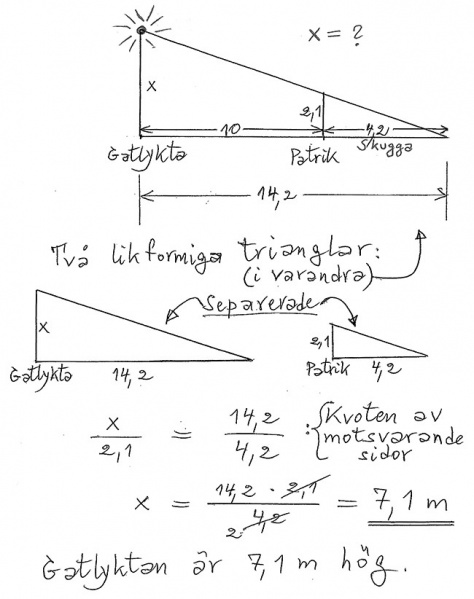 x = ?
x
2,1
10
4,2
Gatlykta
Patrik
Skugga
14,2
Två likformiga trianglar:
(i varandra)
Separerade
x
2,1
Gatlykta 14,2
Patrik 4,2
x/2,1 = 14,2/4,2 : { Kvoten av motsvarande sidor
x = 14,2 · 2,1 / 2 4,2 = 7,1 m
Gatlyktan är 7,1 m hög.